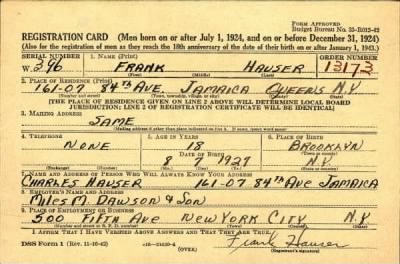 FORM APPROVED
Budget Bureau No. 33-R012-42
REGISTRATION CARD (Men born on or after July 1, 1924, and on or before December 31, 1924)
(Also for the registration of men as they reach the 18th anniversary of the date of their birth on or after January 1, 1943.)
SERIAL NUMBER 1. NAME (Print) ORDER NUMBER
W 296 FRANK HAUSER 13173
(First) (Middle) (Last)
2. PLACE OF RESIDENCE (Print)
161-07 84TH AVE. JAMAICA QUEENS N.Y.
(Number and street) (Town, township, village, or city) (County) (State)
[THE PLACE OF RESIDENCE GIVEN ON LINE 2 ABOVE WILL DETERMINE LOCAL BOARD
JURISDICTION; LINE 2 OF REGISTRATION CERTIFICATE WILL BE IDENTICAL]
3. MAILING ADDRESS
SAME
[Mailing address if other than place indicated on line 2. If same, insert word same]
4. TELEPHONE 5. AGE IN YEARS 6. PLACE OF BIRTH
NONE 18 BROOKLYN
DATE OF BIRTH
N.Y.
7. NAME AND ADDRESS OF PERSON WHO WILL ALWAYS KNOW YOUR ADDRESS
CHARLES HAUSER 161-07 84TH AVE JAMAICA
8. EMPLOYER'S NAME AND ADDRESS
MILES M. DAWSON & SON
9. PLACE OF EMPLOYMENT OR BUSINESS
500 FIFTH AVE NEW YORK CITY N.Y.
(Number and street or R. F. D. number) (Town) (County) (State)
I AFFIRM THAT I HAVE VERIFIED ABOVE ANSWERS AND THAT THEY ARE TRUE.
DSS Form 1 (Rev. 11-16-42) (OVER) Frank Hauser